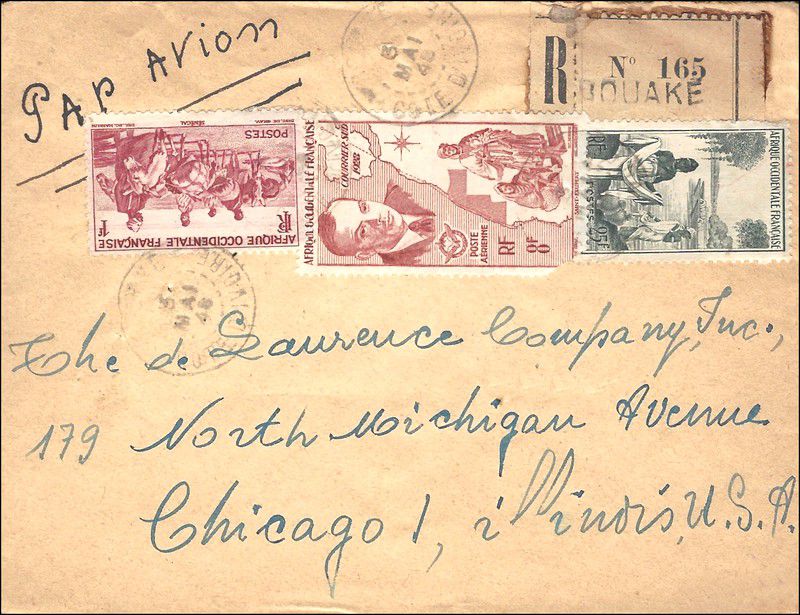 Par Avion
5
MAI
48
COTE D'IVOIRE
R
Nº 165
BOUAKÉ
POSTES
SÉNÉGAL
AFRIQUE OCCIDENTALE FRANÇAISE
RF
1F
AFRIQUE OCCIDENTALE FRANÇAISE
COURRIER SUD
1928
POSTE
AÉRIENNE
RF
8F
AFRIQUE OCCIDENTALE FRANÇAISE
RF
POSTES
5
MAI
48
The de Laurence Company, Inc.,
179 North Michigan Avenue
Chicago 1, illinois, U.S.A.